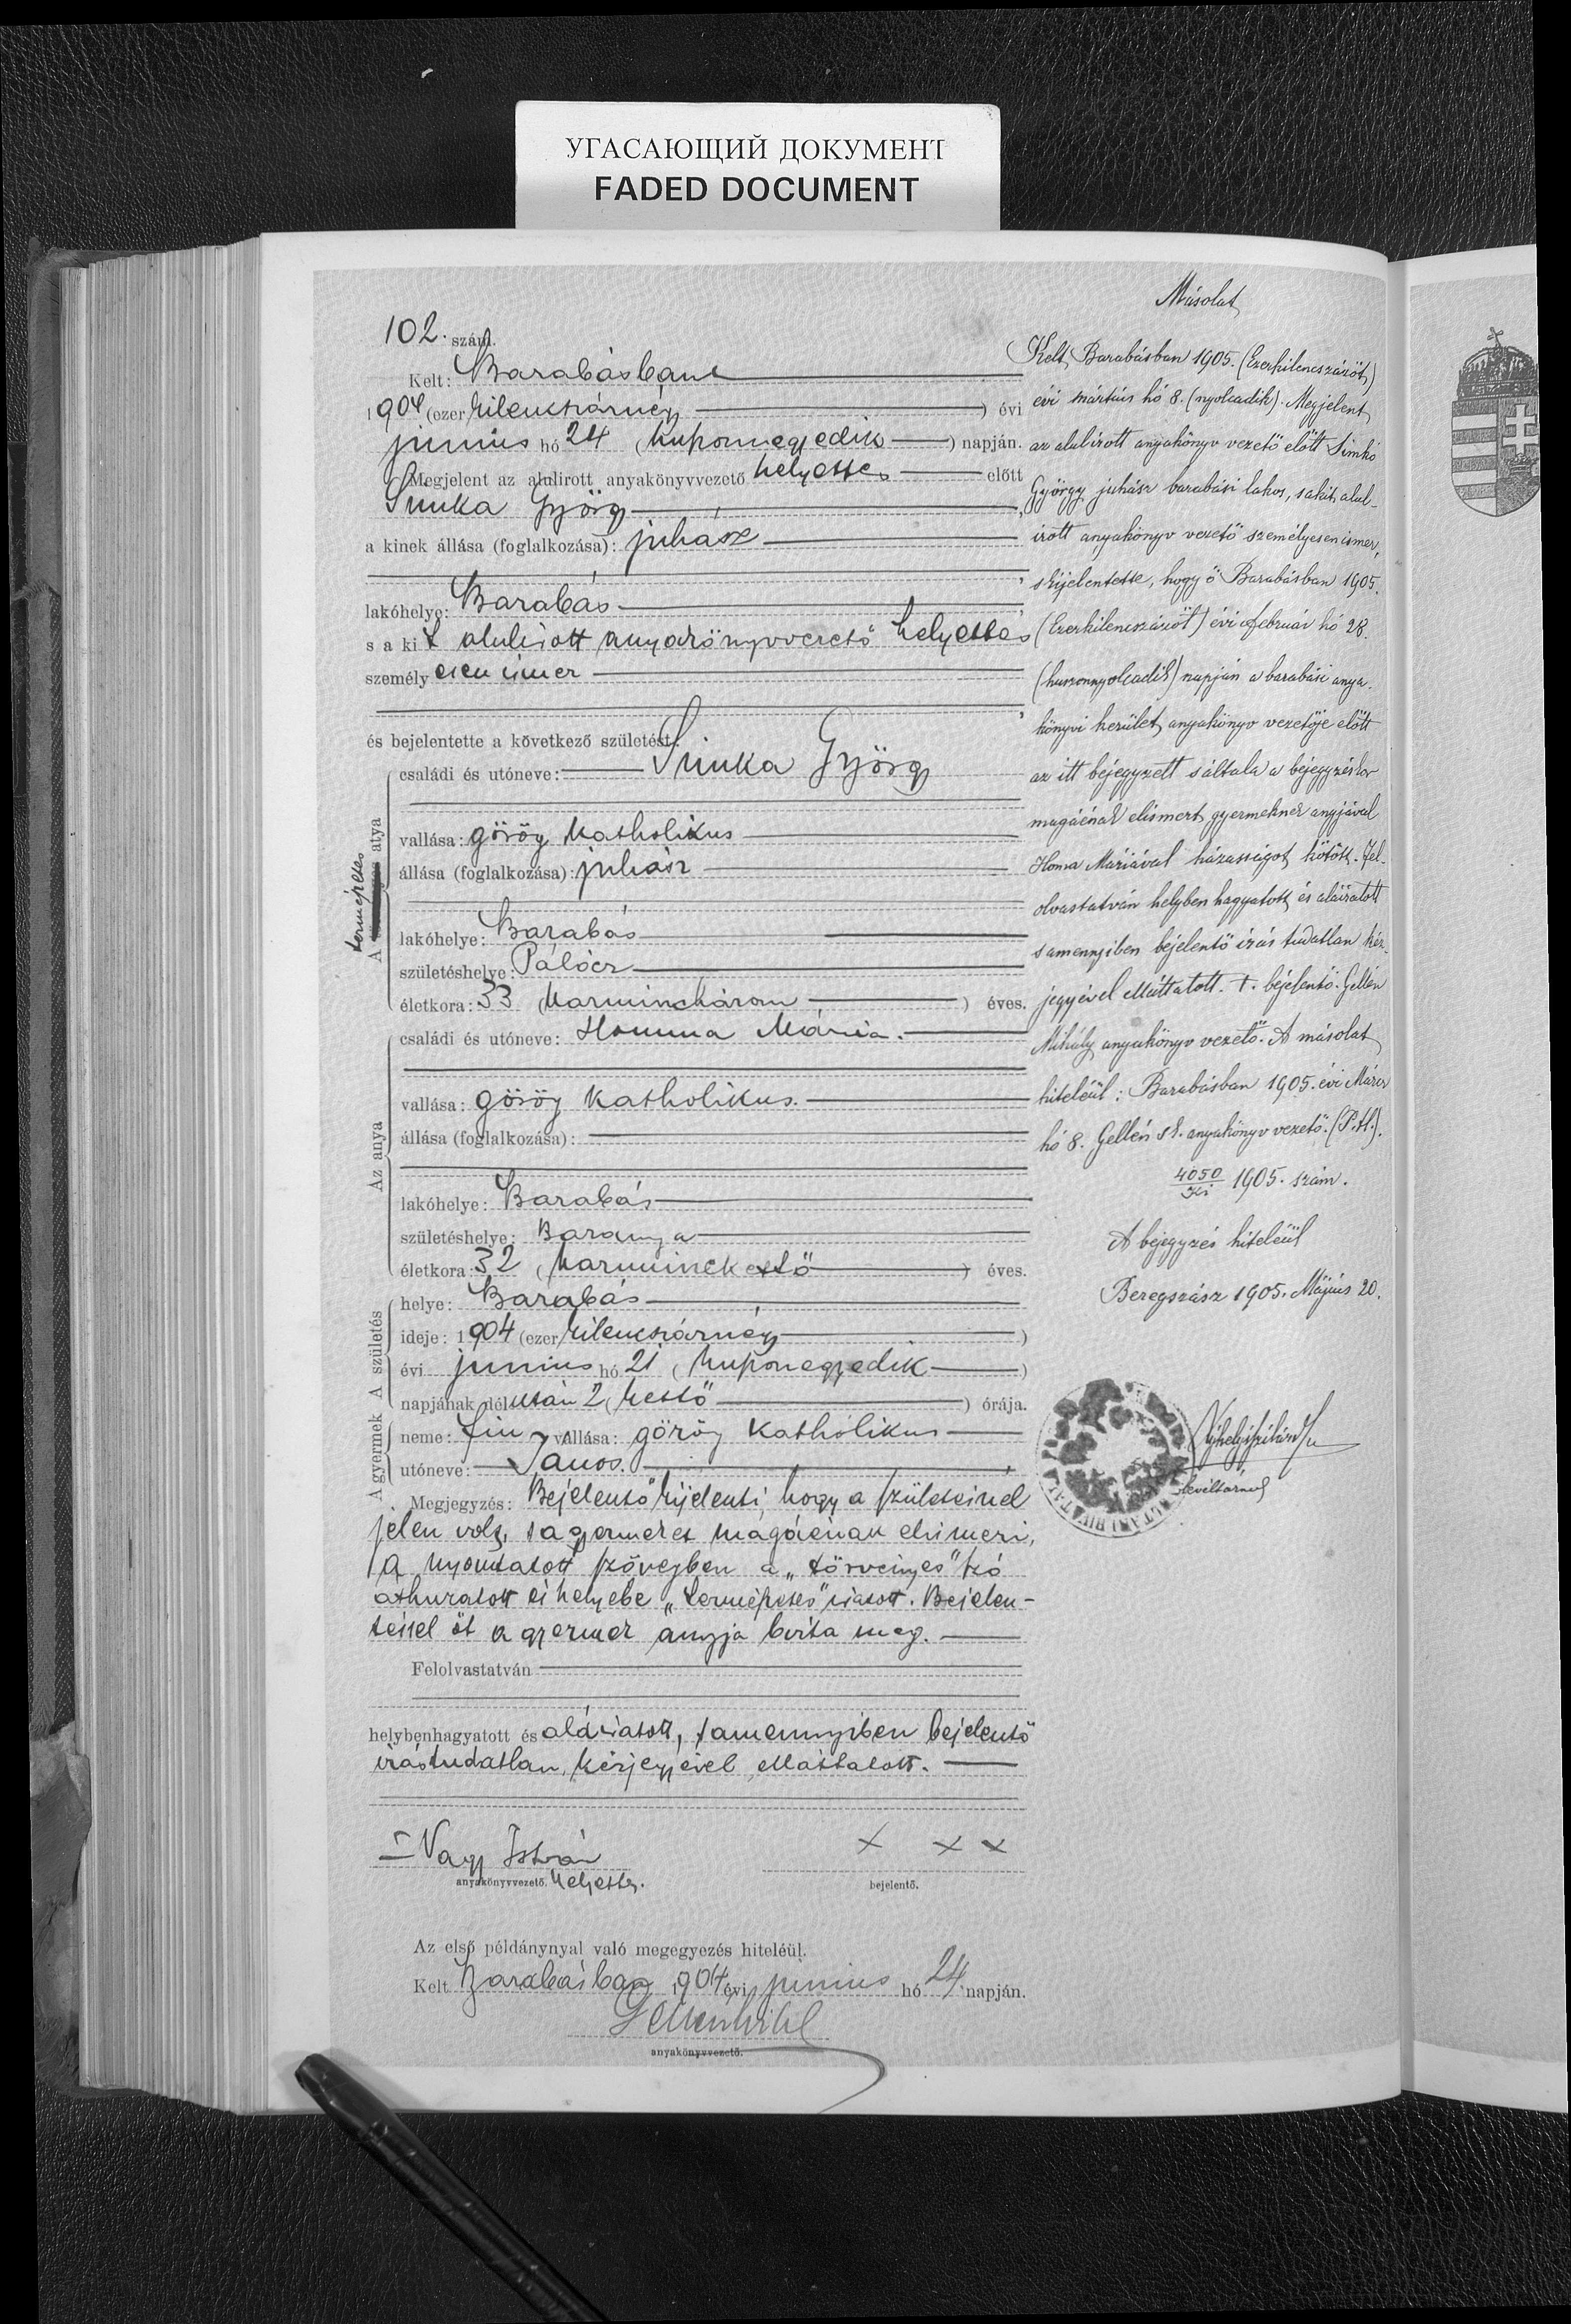 УГАСАЮЩИЙ ДОКУМЕНТ
FADED DOCUMENT
102. szám.
Kelt: Barabásban
1904 (ezer kilencszárnégy) évi
junius hó 24 (huszonnegyedik) napján.
Megjelent az alulirott anyakönyvvezető helyettes előtt
Simka György,
a kinek állása (foglalkozása): juhász
,
lakóhelye: Barabás,
s a kit alulirott anyakönyvvezető helyettes
személyesen ismer
,
és bejelentette a következő születést:
A természetes atya
családi és utóneve: Simka György
vallása: görög katholikus
állása (foglalkozása): juhász
lakóhelye: Barabás
születéshelye: Pálócz
életkora: 33 (harminchárom) éves.
Az anya
családi és utóneve: Homma Mária.
vallása: görög katholikus.
állása (foglalkozása):
lakóhelye: Barabás
születéshelye: Baranya
életkora: 32 (harminckettő) éves.
A születés
helye: Barabás
ideje: 1904 (ezer kilencszárnégy)
évi junius hó 21 (huszonegyedik)
napjának délután 2 (kettő) órája.
A gyermek
neme: fiu vallása: görög katholikus
utóneve: János.
Megjegyzés: Bejelentő kijelenti, hogy a születésnél
jelen volt, s a gyermeket magáénak elismeri,
A nyomtatott szövegben a „törvényes" szó
áthuzatott és helyébe „természetes" iratott. Bejelen-
téssel őt a gyermek anyja bizta meg.
Felolvastatván
helybenhagyatott és aláiratott, s amennyiben bejelentő
irástudatlan, kézjegyével elláttatott.
Nagy István x x x
anyakönyvvezető. helyettes. bejelentő.
Az első példánynyal való megegyezés hiteléül.
Kelt Barabásban 1904 évi junius hó 24 napján.
anyakönyvvezető.
Másolat
Kelt Barabásban 1905. (Ezerkilenczszázöt)
évi mártius hó 8. (nyolcadik). Megjelent
az alulirott anyakönyv vezető előtt Simkó
György juhász barabási lakos, s akit alul-
irott anyakönyv vezető személyesen ismer,
s kijelentette, hogy ő Barabásban 1905.
(Ezerkilenczszázöt) évi február hó 28.
(huszonnyolcadik) napján a barabási anya-
könyvi kerület anyakönyv vezetője előtt
az itt bejegyzett s általa a bejegyzéskor
magáénak elismert gyermeknek anyjával
Homa Máriával házasságot kötött. Fel-
olvastatván helyben hagyatott és aláiratott
s amennyiben bejelentő irás tudatlan kéz-
jegyével elláttatott. +. bejelentő. Gellén
Mihály anyakönyv vezető. A másolat
hiteléül: Barabásban 1905. évi Márcz
hó 8. Gellén sk. anyakönyv vezető. (P.H.).
4050/Ki 1905. szám.
A bejegyzés hiteléül
Beregszász 1905. Május 20.
levéltárnok